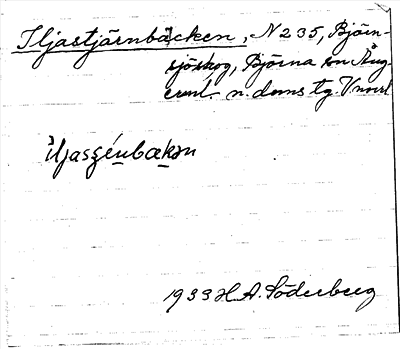 Iljastjärnbäcken, N 235, Björn-
sjöskog, Björna sn Ång
erml. n. doms tg. V norrl
Iljasşénbækən
1933 H.A. Söderberg